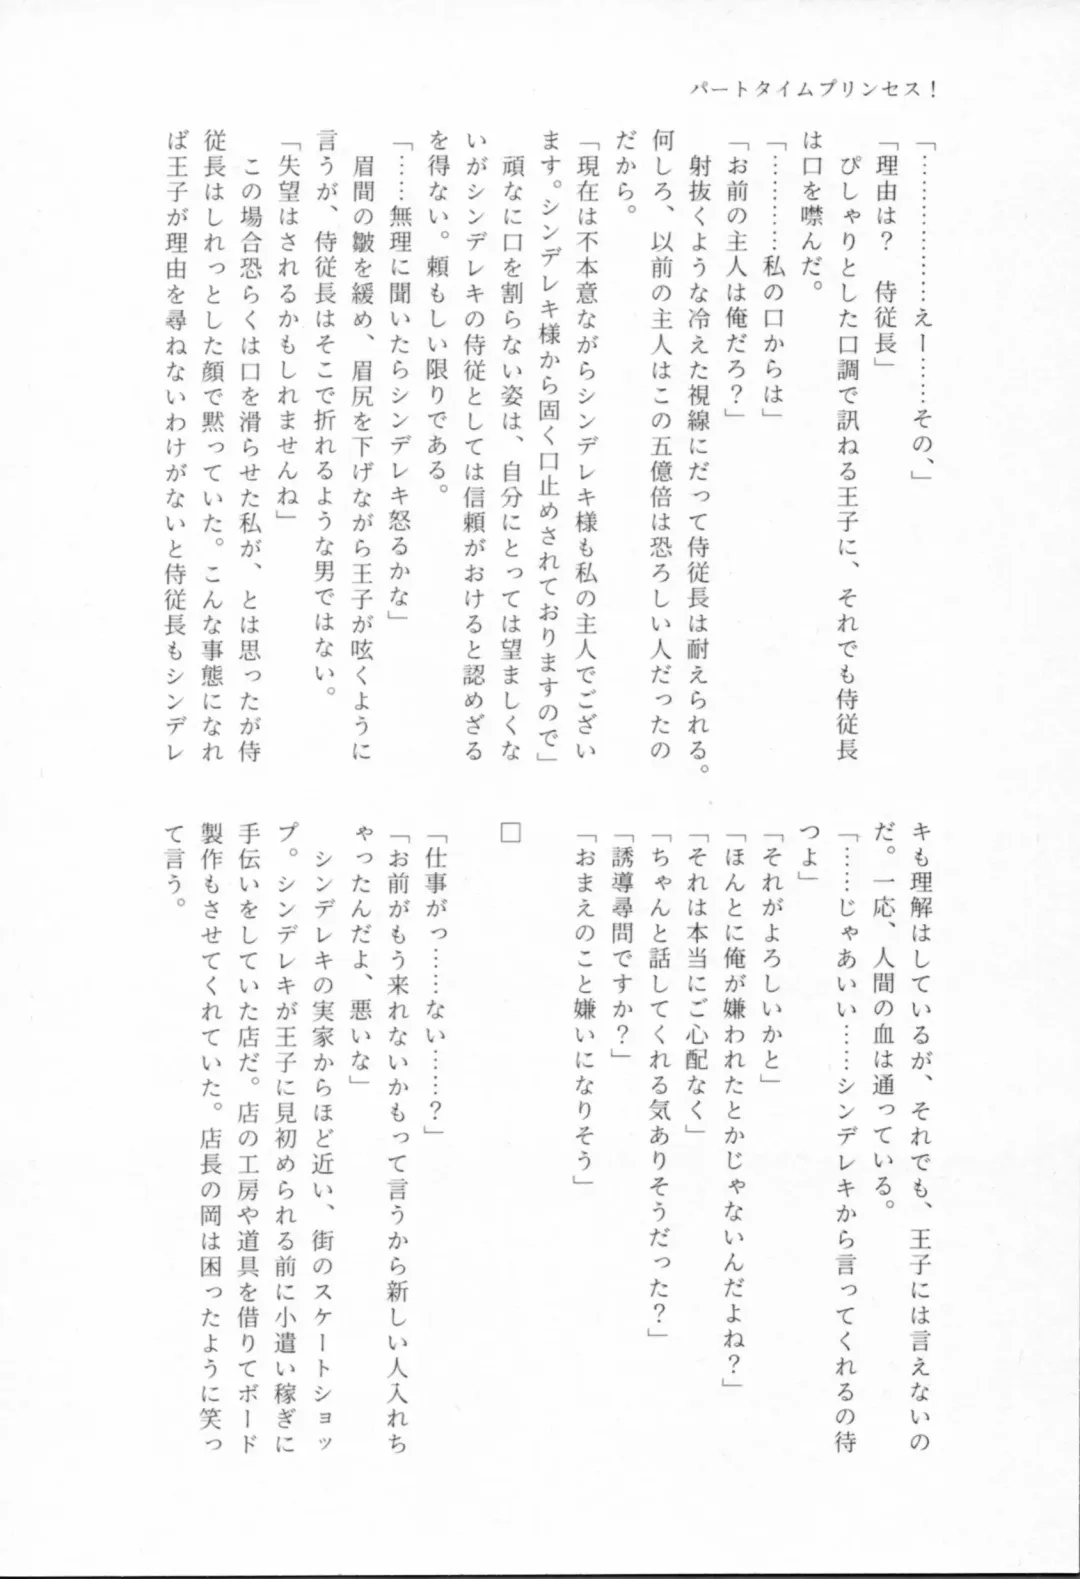 パートタイムプリンセス！
「………………えー……その、」
「理由は？　侍従長」
　ぴしゃりとした口調で訊ねる王子に、それでも侍従長
は口を噤んだ。
「…………私の口からは」
「お前の主人は俺だろ？」
　射抜くような冷えた視線にだって侍従長は耐えられる。
何しろ、以前の主人はこの五億倍は恐ろしい人だったの
だから。
「現在は不本意ながらシンデレキ様も私の主人でござい
ます。シンデレキ様から固く口止めされておりますので」
　頑なに口を割らない姿は、自分にとっては望ましくな
いがシンデレキの侍従としては信頼がおけると認めざる
を得ない。頼もしい限りである。
「……無理に聞いたらシンデレキ怒るかな」
　眉間の皺を緩め、眉尻を下げながら王子が呟くように
言うが、侍従長はそこで折れるような男ではない。
「失望はされるかもしれませんね」
　この場合恐らくは口を滑らせた私が、とは思ったが侍
従長はしれっとした顔で黙っていた。こんな事態になれ
ば王子が理由を尋ねないわけがないと侍従長もシンデレ
キも理解はしているが、それでも、王子には言えないの
だ。一応、人間の血は通っている。
「……じゃあいい……シンデレキから言ってくれるの待
つよ」
「それがよろしいかと」
「ほんとに俺が嫌われたとかじゃないんだよね？」
「それは本当にご心配なく」
「ちゃんと話してくれる気ありそうだった？」
「誘導尋問ですか？」
「おまえのこと嫌いになりそう」
□
「仕事がっ……ない……？」
「お前がもう来れないかもって言うから新しい人入れち
ゃったんだよ、悪いな」
　シンデレキの実家からほど近い、街のスケートショッ
プ。シンデレキが王子に見初められる前に小遣い稼ぎに
手伝いをしていた店だ。店の工房や道具を借りてボード
製作もさせてくれていた。店長の岡は困ったように笑っ
て言う。